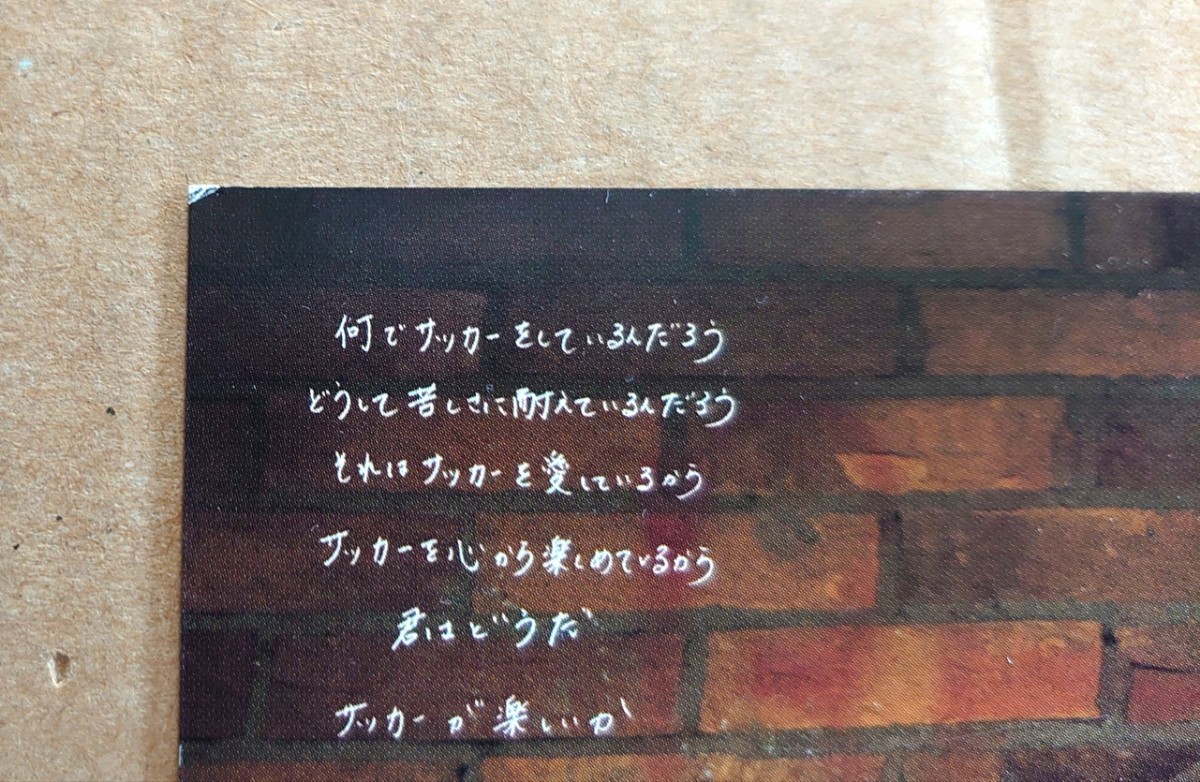 何でサッカーをしているんだろう
どうして苦しさに耐えているんだろう
それはサッカーを愛しているから
サッカーを心から楽しめているから
君はどうだ
サッカーが楽しいか